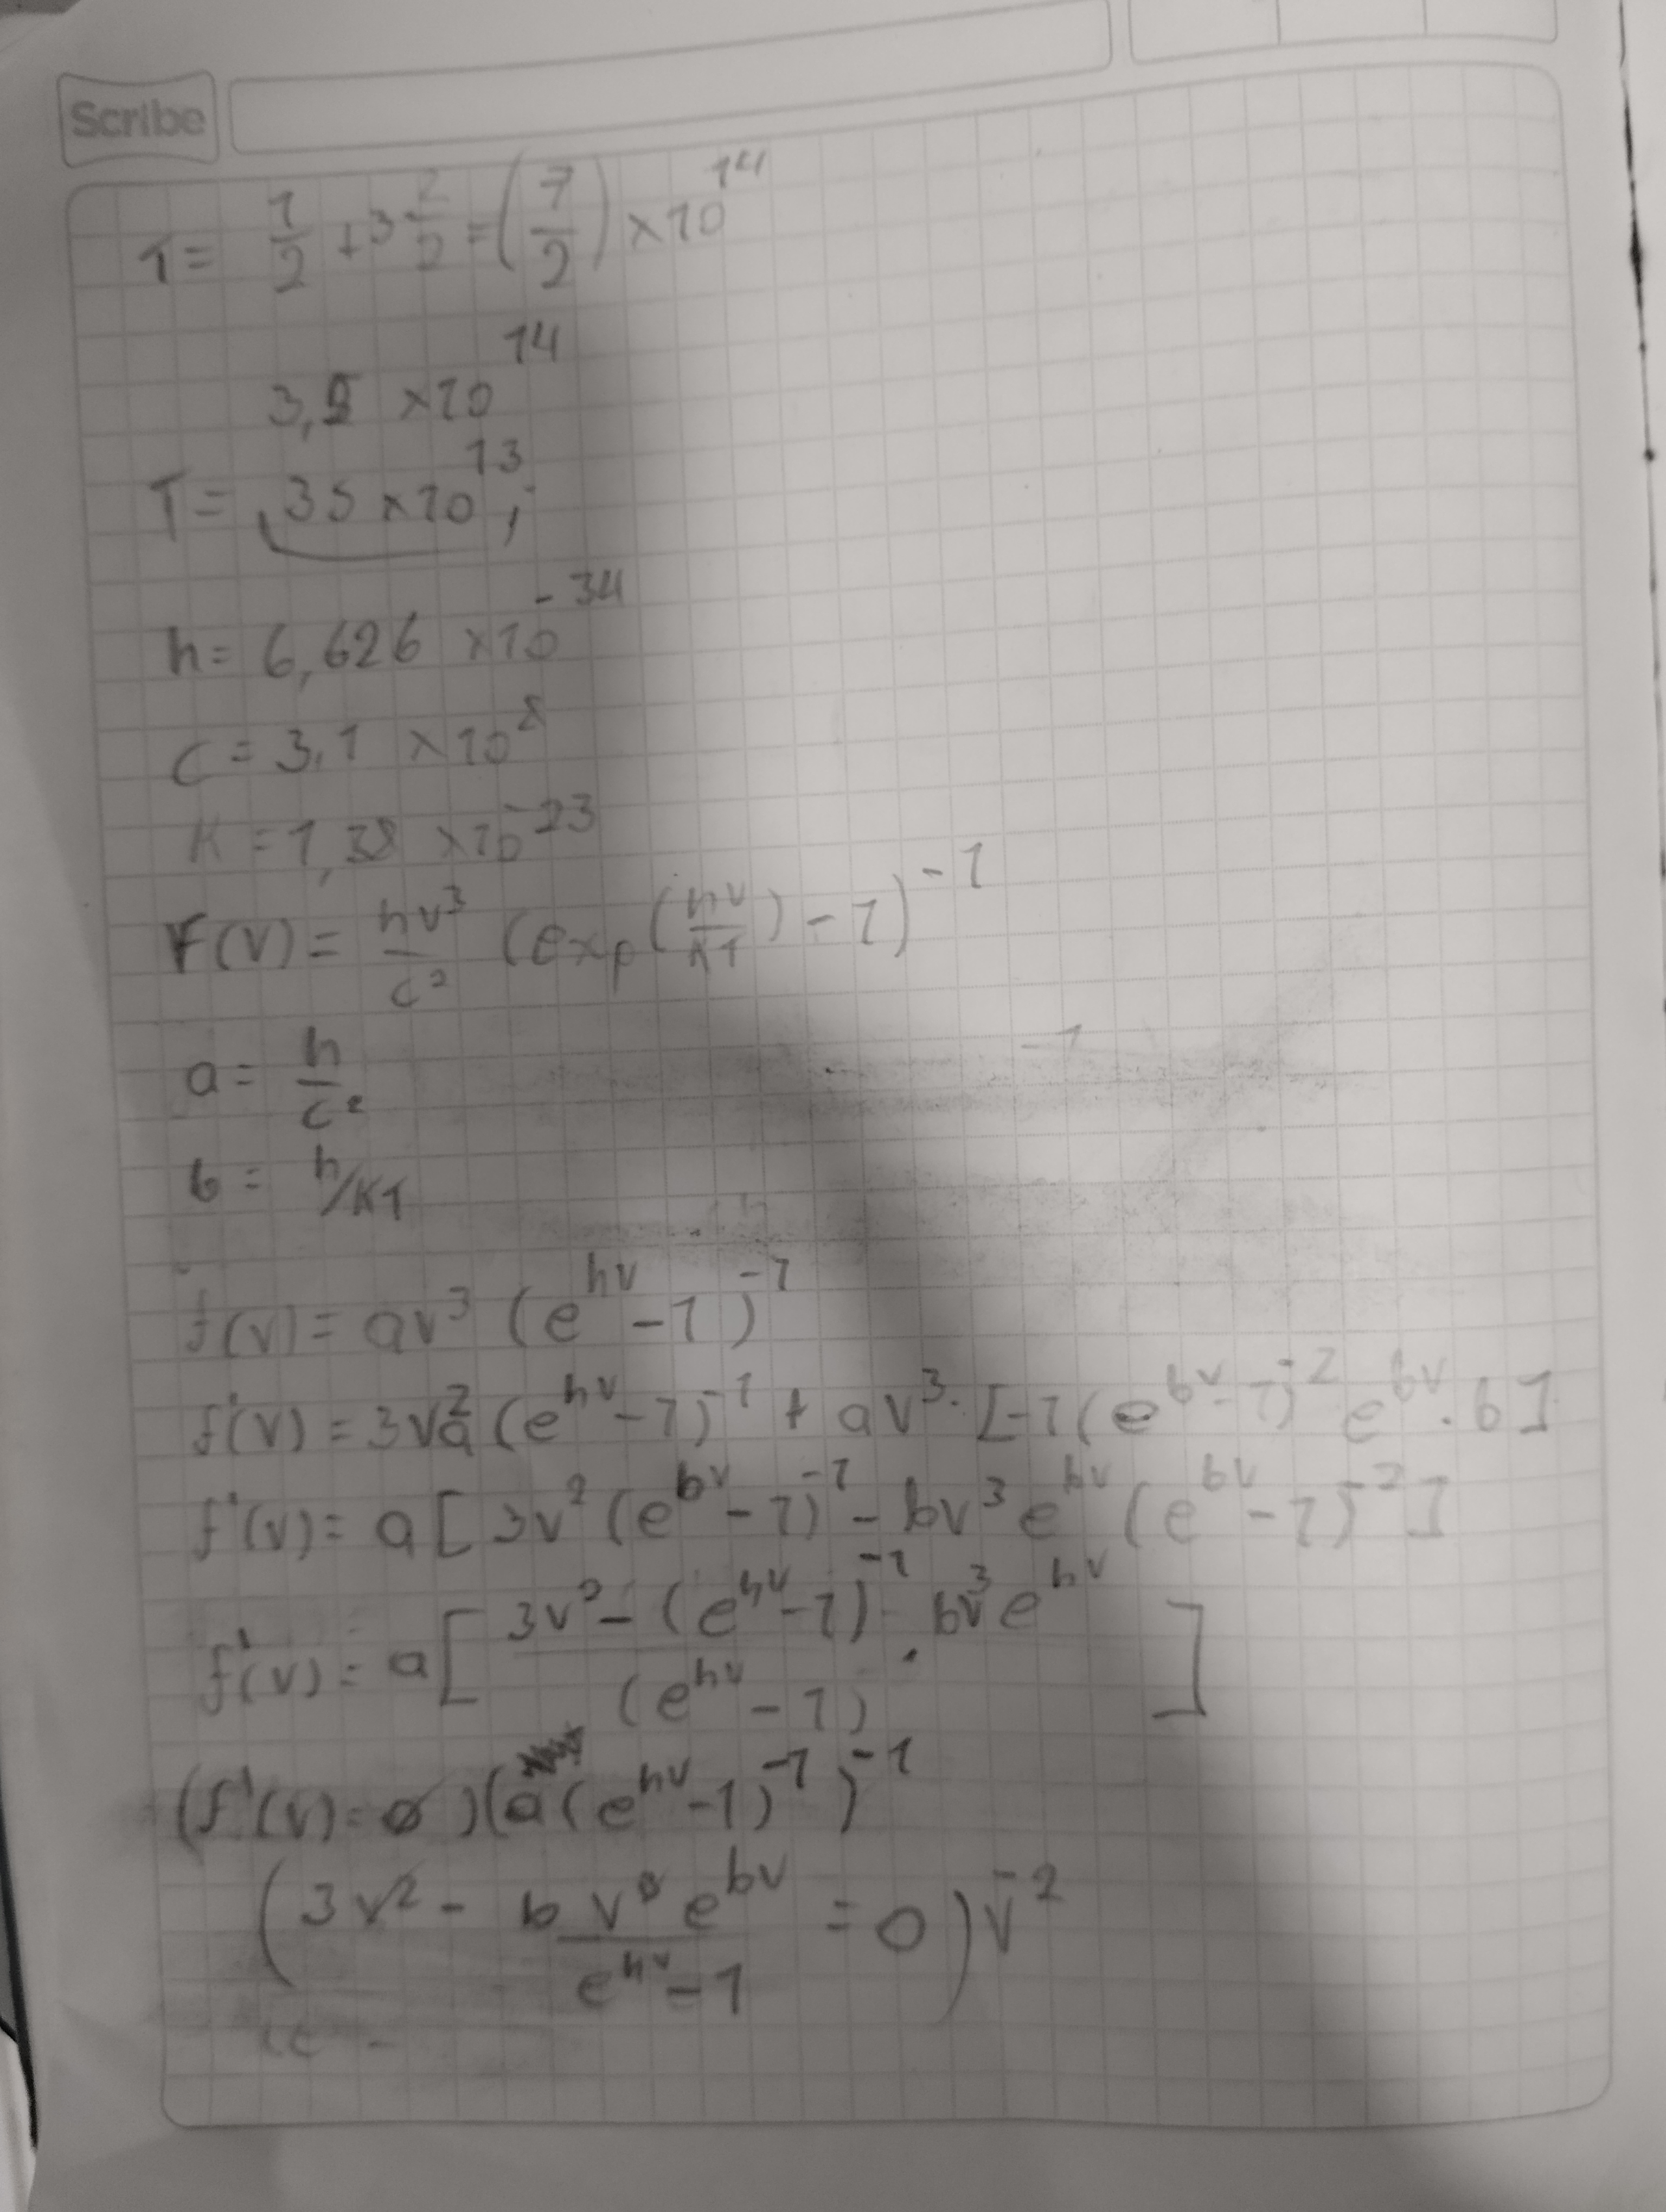 Scribe
T = 1/2 + 3 2/2 = (7/2) ×10^14
3,5 ×10^14
T = 35 ×10^13;
h = 6,626 ×10^-34
c = 3,1 ×10^8
K = 1,38 ×10^-23
F(v) = hv^3/c^2 (exp(hv/KT) - 1)^-1
a = h/c^2
b = h/KT
f(v) = av^3 (e^hv - 1)^-1
f'(v) = 3v^2a (e^hv - 1)^-1 + av^3 · [-1(e^bv - 1)^-2 e^bv · b]
f'(v) = a [3v^2 (e^bv - 1)^-1 - bv^3 e^bv (e^bv - 1)^-2]
f'(v) = a [ 3v^2 - (e^hv - 1)^-1 · bv^3 e^hv / (e^hv - 1) ]
(f'(v) = 0)(a(e^hv - 1)^-1)^-1
(3v^2 - b v^3 e^bv / e^hv - 1 = 0) v^-2